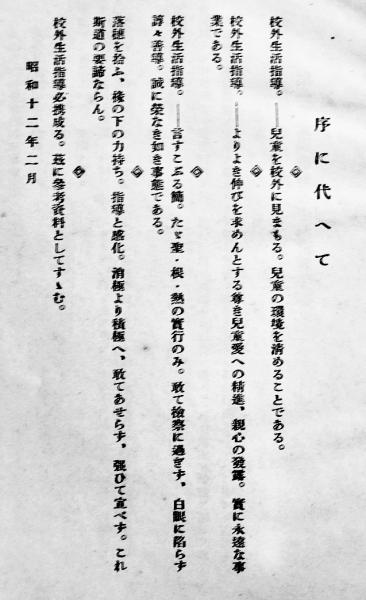 序に代へて
校外生活指導。――兒童を校外に見まもる。兒童の環境を清めることである。
◇
校外生活指導。――よりよき伸びを求めんとする尊き兒童愛への精進、親心の發露。實に永遠な事
業である。
◇
校外生活指導。――言すこぶる簡。たゞ聖・楔・熱の實行のみ。敢て檢察に過ぎず、白眼に陷らず
諄々善導。誠に榮なき如き事態である。
◇
落穗を拾ふ、椽の下の力持ち。指導と感化。消極より積極へ、敢てあせらず、强ひて宣べず。これ
斯道の要諦ならん。
◇
校外生活指導必携成る。茲に參考資料としてすゝむ。
昭和十二年二月